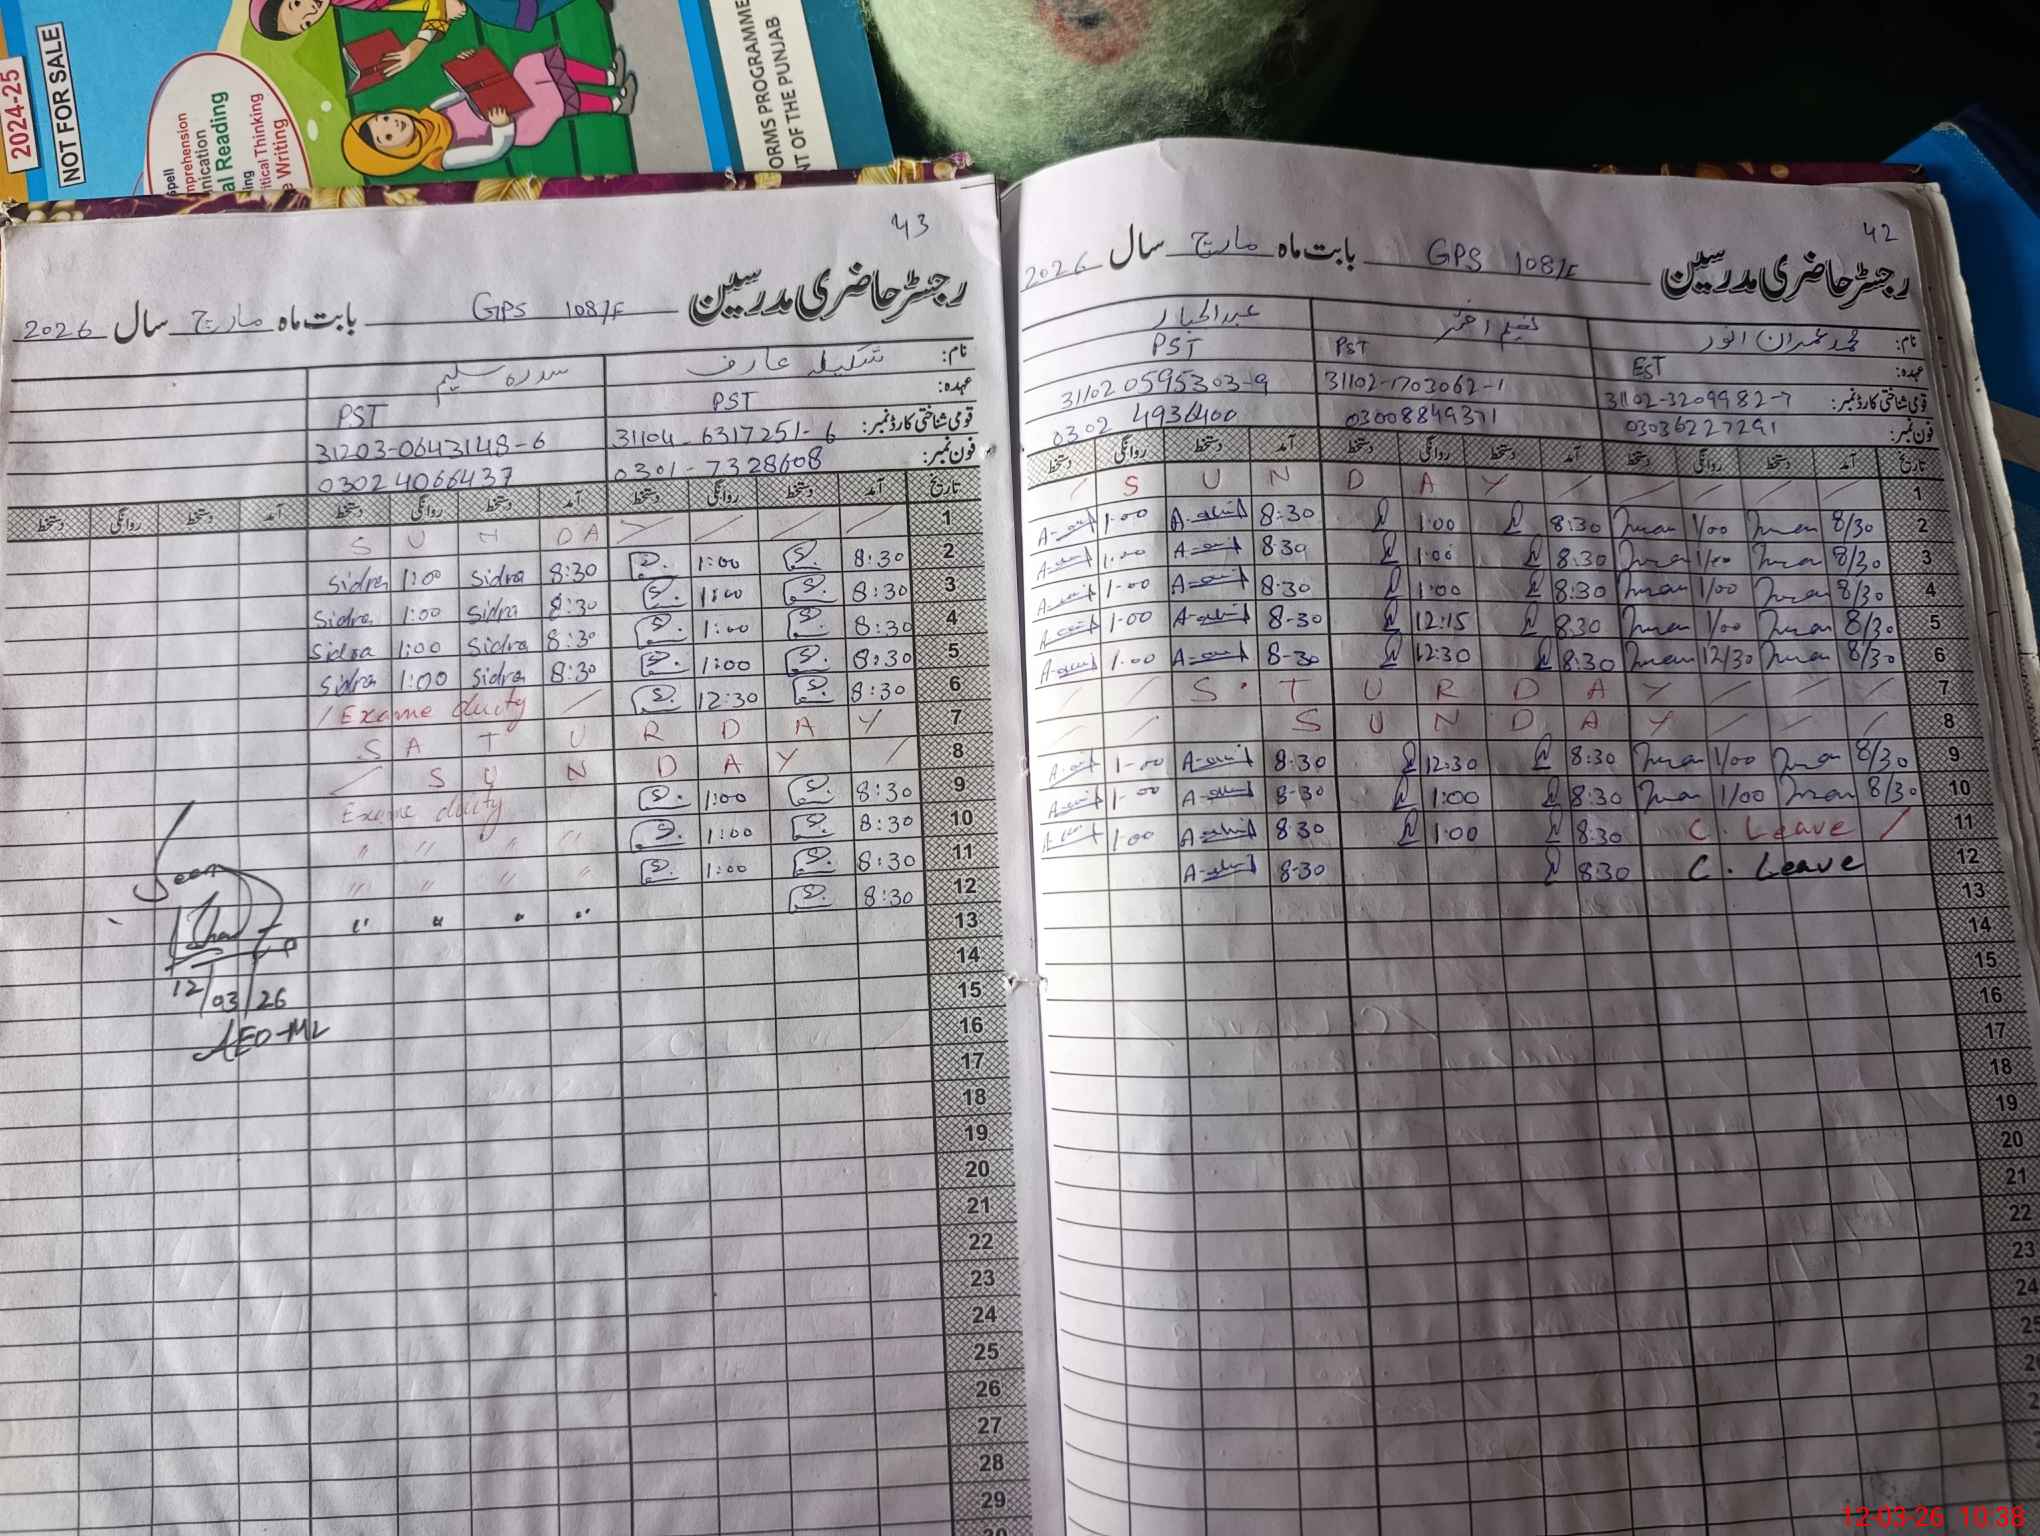 2024-25
NOT FOR SALE
Spell
Comprehension
Reading
Critical Thinking
Writing
NORMS PROGRAMME
GOVERNMENT OF THE PUNJAB
42
رجسٹر حاضری مدرسین GPS 108/F بابت ماہ مارچ سال 2026
نام: محمد عمران انور نعیم اختر عبدالجبار
عہدہ: EST PST PST
قومی شناختی کارڈ نمبر: 31102-3209982-7 31102-1703062-1 31102 0595303-9
فون نمبر: 03036227291 03008849371 0302 4936400
تاریخ آمد دستخط روانگی دستخط آمد دستخط روانگی دستخط آمد دستخط روانگی دستخط
1 / S U N D A Y / / / / /
2 8/30 Imran 1/00 Imran 8:30 1:00 8:30 1:00
3 8/30 Imran 1/00 Imran 8:30 1:00 8:30 1:00
4 8/30 Imran 1/00 Imran 8:30 1:00 8:30 1-00
5 8/30 Imran 1/00 Imran 8:30 12:15 8-30 1-00
6 8/30 Imran 12/30 Imran 8:30 12:30 8-30 1:00
7 / / S T U R D A Y / / /
8 / / S U N D A Y / / /
9 8/30 Imran 1/00 Imran 8:30 12:30 8:30 1-00
10 8/30 Imran 1/00 Imran 8:30 1:00 8-30 1-00
11 C. Leave / 8:30 1:00 8:30 1:00
12 C. Leave 8:30 8-30
13
14
15
16
17
18
19
20
21
22
23
24
43
رجسٹر حاضری مدرسین GPS 108/F بابت ماہ مارچ سال 2026
نام: شکیلہ عارف سدرہ سلیم
عہدہ: PST PST
قومی شناختی کارڈ نمبر: 31104-6317251-6 31203-0643148-6
فون نمبر: 0301-7328608 03024066437
تاریخ آمد دستخط روانگی دستخط آمد دستخط روانگی دستخط آمد دستخط روانگی دستخط
1 S U N DA Y / / /
2 8:30 S. 1:00 S. 8:30 Sidra 1:00 Sidra
3 8:30 S. 1:00 S. 8:30 Sidra 1:00 Sidra
4 8:30 S. 1:00 S. 8:30 Sidra 1:00 Sidra
5 8:30 S. 1:00 S. 8:30 Sidra 1:00 Sidra
6 8:30 S. 12:30 S. / Exame duity /
7 S A T U R D A Y
8 / S U N D A Y /
9 8:30 S. 1:00 S. Exame duity
10 8:30 S. 1:00 S. " " " "
11 8:30 S. 1:00 S. " " " "
12 8:30 S. " " " "
13
14
15
16
17
18
19
20
21
22
23
24
25
26
27
28
29
30
Seen
12/03/26
AEO-ML
12-03-26 10:38